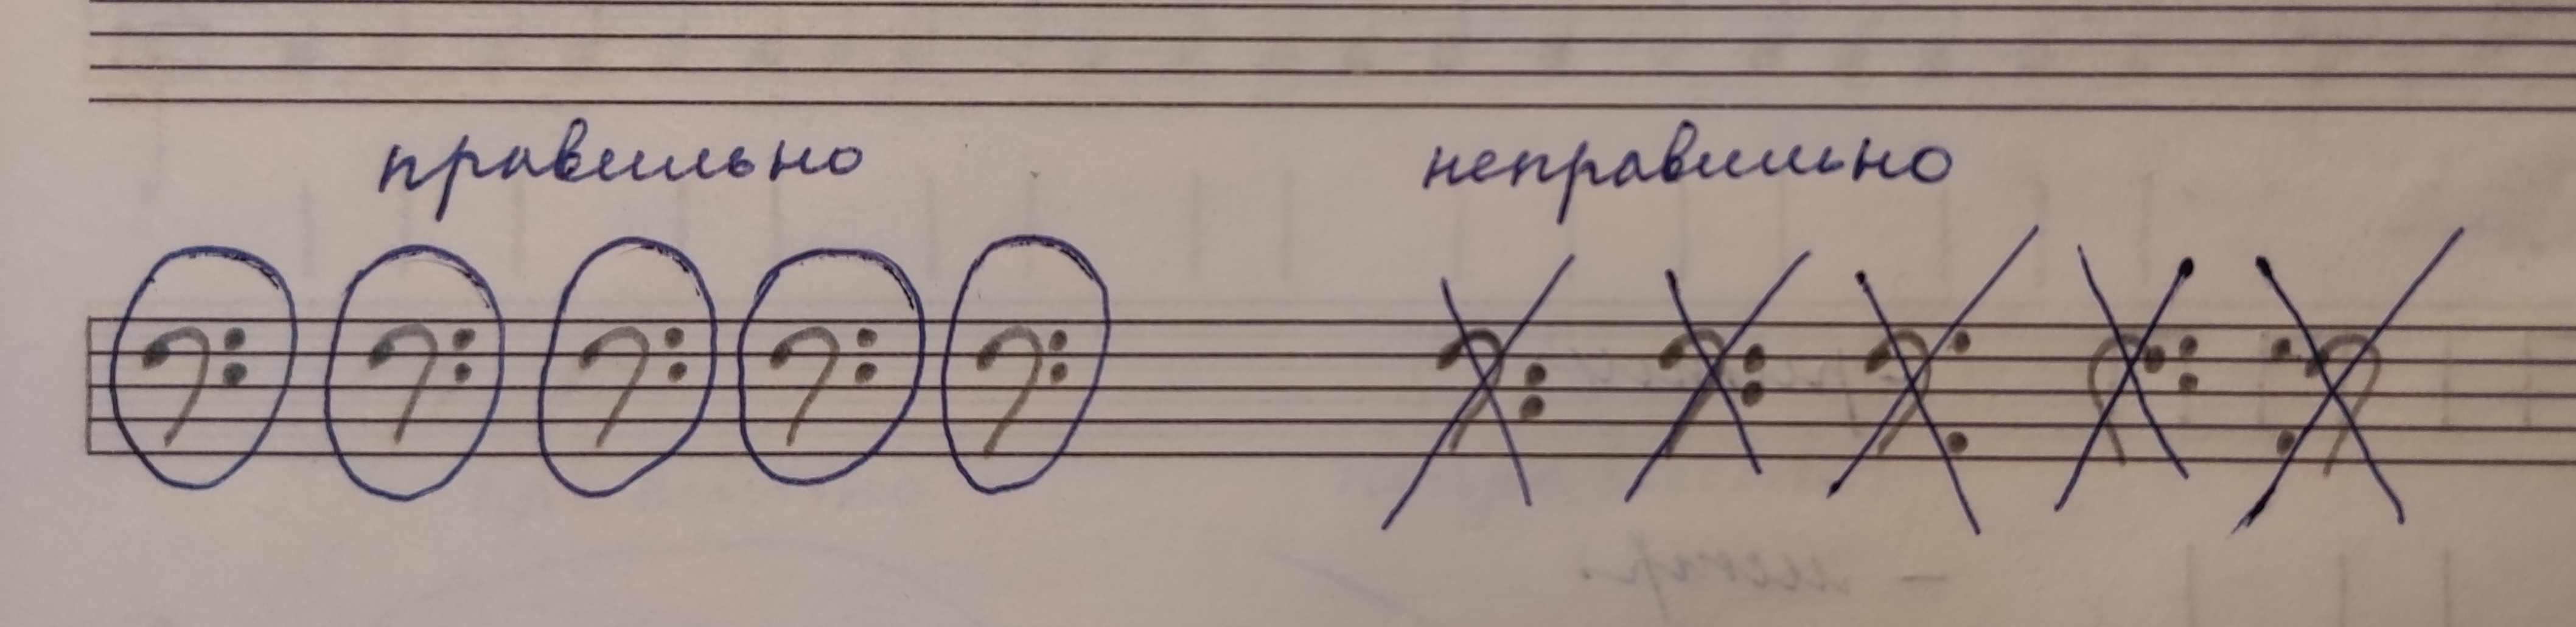 правильно неправильно